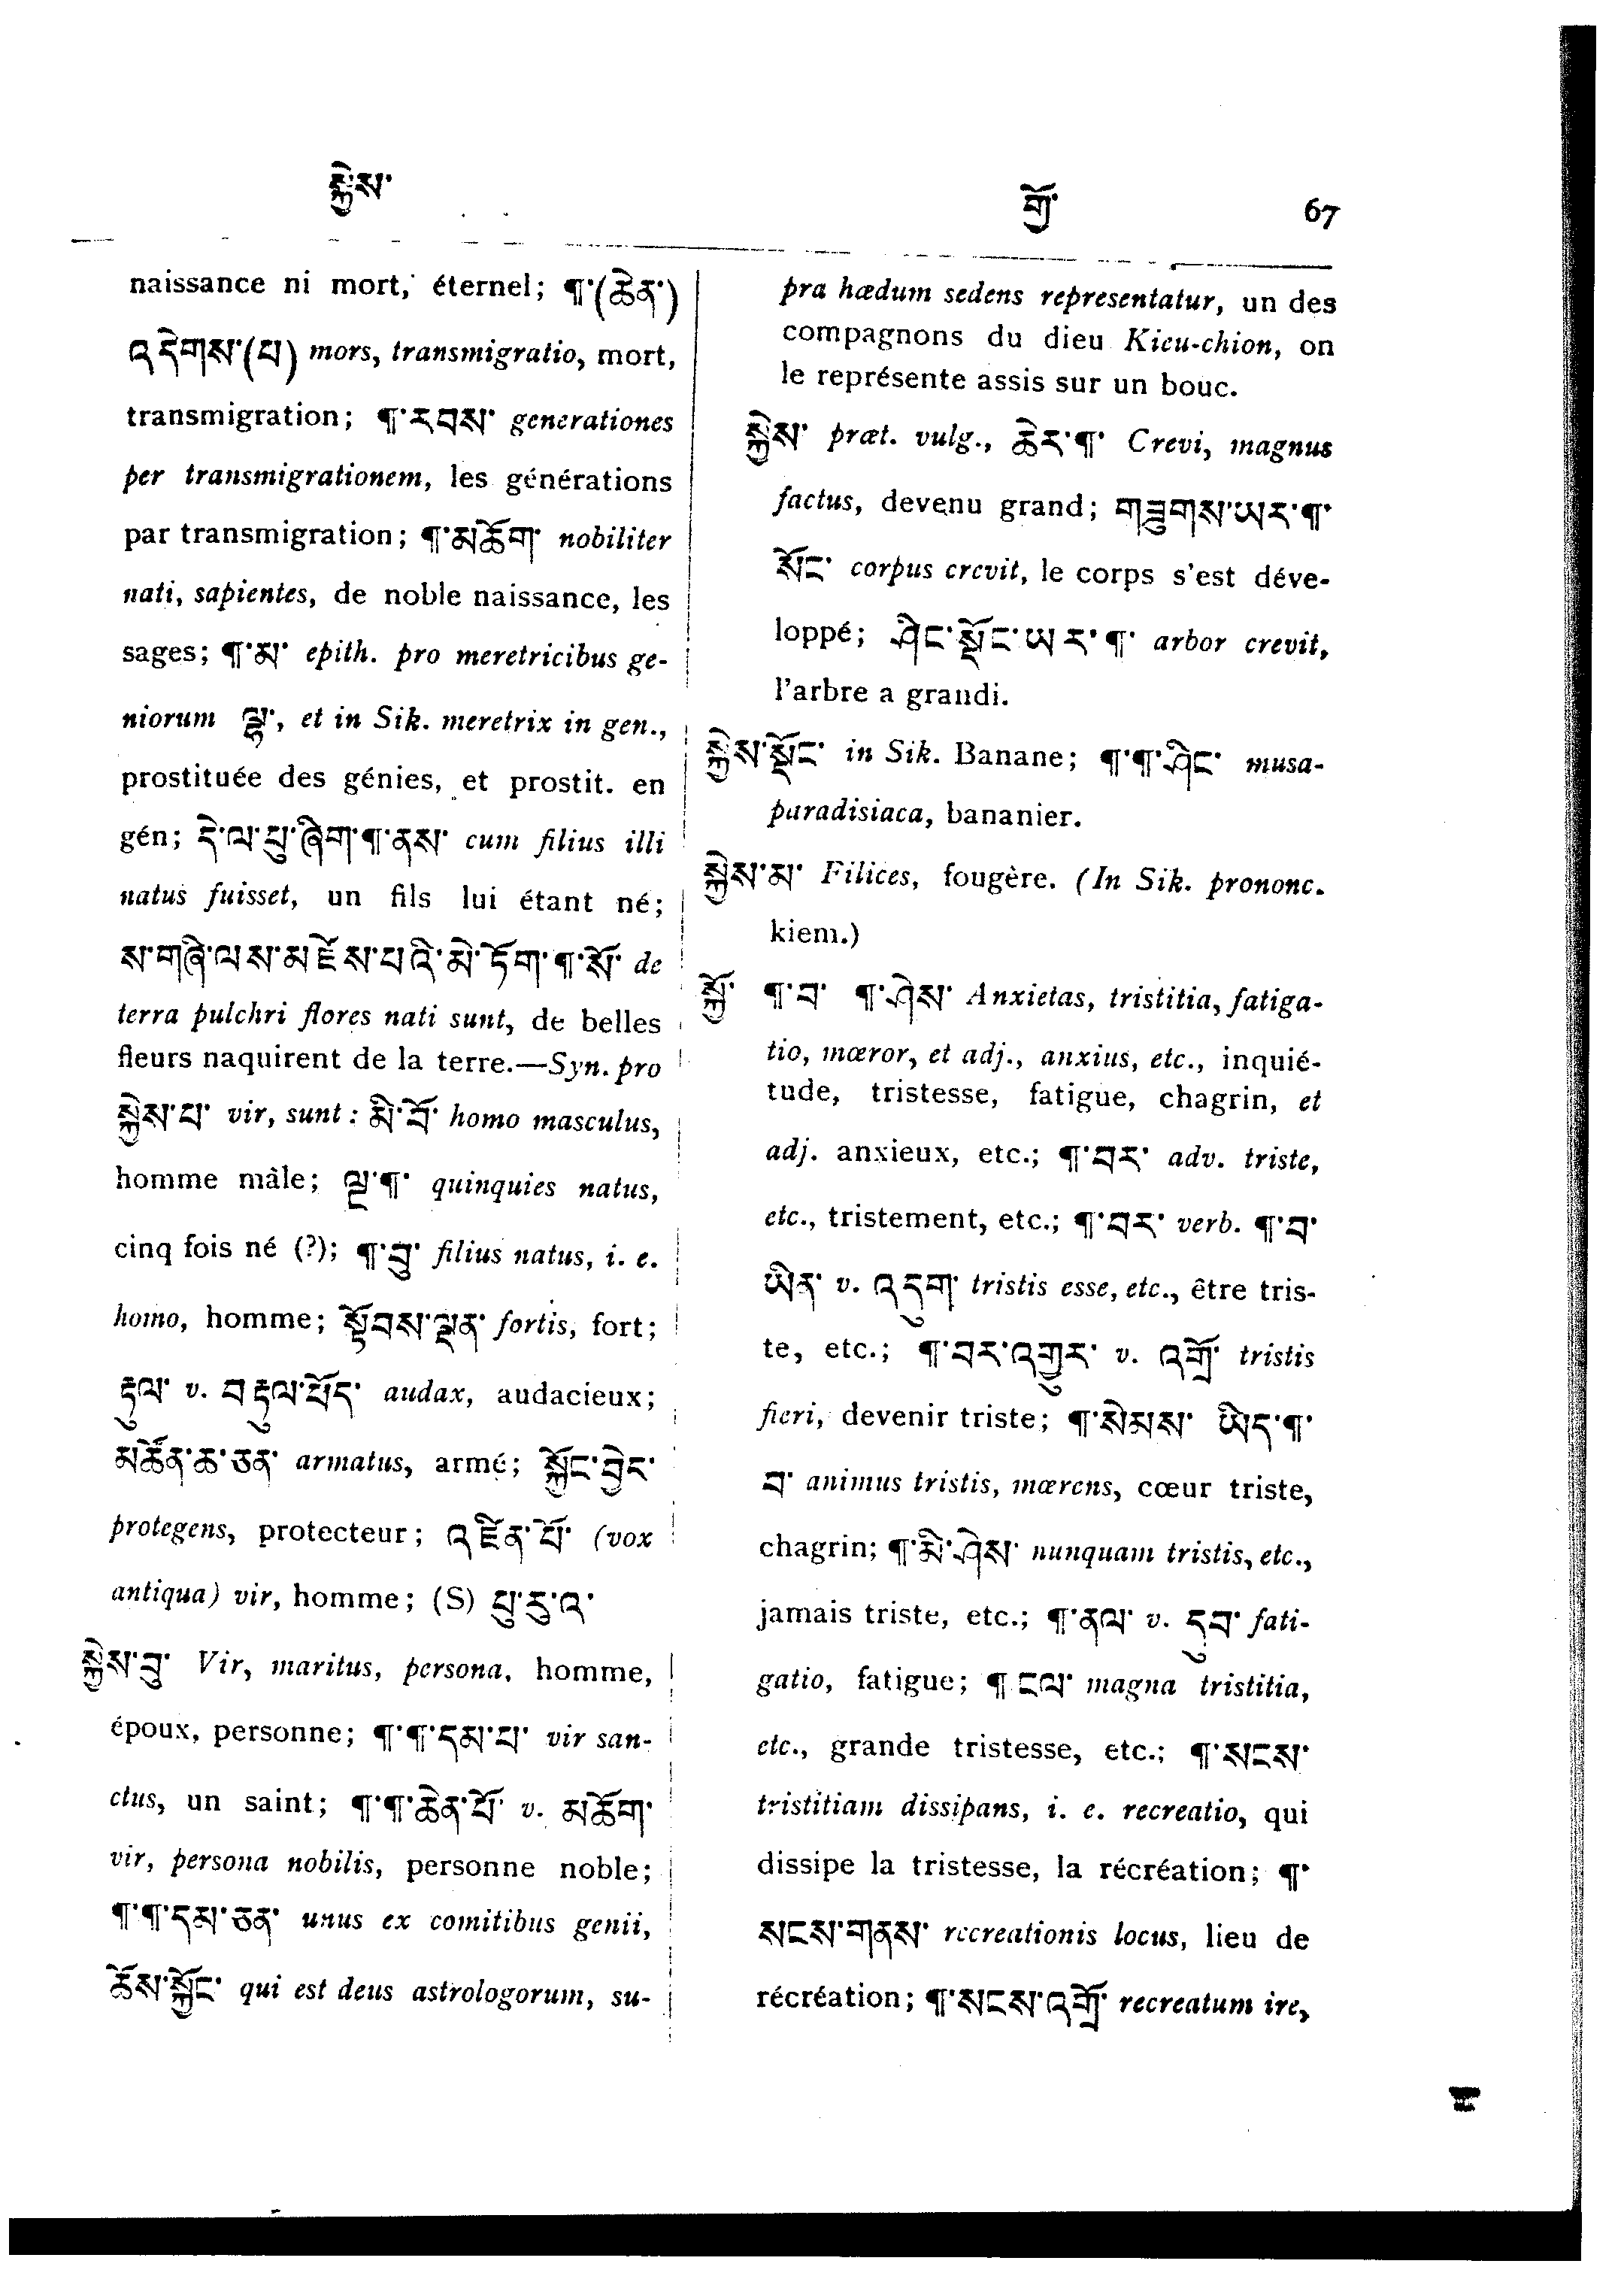 སྐྱེས་
སྐྱོ་ 67
naissance ni mort, éternel; ¶་(ཆེན་)
འདེགས་(པ) mors, transmigratio, mort,
transmigration; ¶་རབས་ generationes
per transmigrationem, les générations
par transmigration; ¶་མཆོག་ nobiliter
nati, sapientes, de noble naissance, les
sages; ¶་མ་ epith. pro meretricibus ge-
niorum ལྷ་, et in Sik. meretrix in gen.,
prostituée des génies, et prostit. en
gén; དེ་ལ་པུ་ཞིག་¶་ནས་ cum filius illi
natus fuisset, un fils lui étant né;
ས་གཞི་ལས་མཛོས་པའི་མེ་ཏོག་¶་སོ་ de
terra pulchri flores nati sunt, de belles
fleurs naquirent de la terre.—Syn. pro
སྐྱེས་པ་ vir, sunt: མི་བོ་ homo masculus,
homme mâle; ལྔ་¶་ quinquies natus,
cinq fois né (?); ¶་བུ་ filius natus, i. e.
homo, homme; སྟོབས་ལྡན་ fortis, fort;
རྟུལ་ v. བརྟུལ་པོད་ audax, audacieux;
མཚོན་ཆ་ཅན་ armatus, armé; སྐྱོང་བྱེད་
protegens, protecteur; འཛིན་པོ་ (vox
antiqua) vir, homme; (S) པུ་རུ་འ་
སྐྱེས་བུ་ Vir, maritus, persona, homme,
époux, personne; ¶་¶་དམ་པ་ vir san-
ctus, un saint; ¶་¶་ཆེན་པོ་ v. མཆོག་
vir, persona nobilis, personne noble;
¶་¶་དམ་ཅན་ unus ex comitibus genii,
ཆོས་སྐྱོང་ qui est deus astrologorum, su-
pra hædum sedens representatur, un des
compagnons du dieu Kieu-chion, on
le représente assis sur un bouc.
སྐྱེས་ præt. vulg., ཆེར་¶་ Crevi, magnus
factus, devenu grand; གཟུགས་ཡར་¶་
སོང་ corpus crevit, le corps s'est déve-
loppé; ཤིང་སྡོང་ཡར་¶་ arbor crevit,
l'arbre a grandi.
སྐྱེས་སྡོང་ in Sik. Banane; ¶་¶་ཤིང་ musa-
paradisiaca, bananier.
སྐྱེས་མ་ Filices, fougère. (In Sik. prononc.
kiem.)
སྐྱོ་ ¶་བ་ ¶་ཤེས་ Anxietas, tristitia, fatiga-
tio, mœror, et adj., anxius, etc., inquié-
tude, tristesse, fatigue, chagrin, et
adj. anxieux, etc.; ¶་བར་ adv. triste,
etc., tristement, etc.; ¶་བར་ verb. ¶་བ་
ཡིན་ v. འདུག་ tristis esse, etc., être tris-
te, etc.; ¶་བར་འགྱུར་ v. འགྲོ་ tristis
fieri, devenir triste; ¶་སེམས་ ཡིད་¶་
བ་ animus tristis, mœrens, cœur triste,
chagrin; ¶་མི་ཤེས་ nunquam tristis, etc.,
jamais triste, etc.; ¶་ནལ་ v. དུབ་ fati-
gatio, fatigue; ¶ ངལ་ magna tristitia,
etc., grande tristesse, etc.; ¶་སངས་
tristitiam dissipans, i. e. recreatio, qui
dissipe la tristesse, la récréation; ¶་
སངས་གནས་ recreationis locus, lieu de
récréation; ¶་སངས་འགྲོ་ recreatum ire,